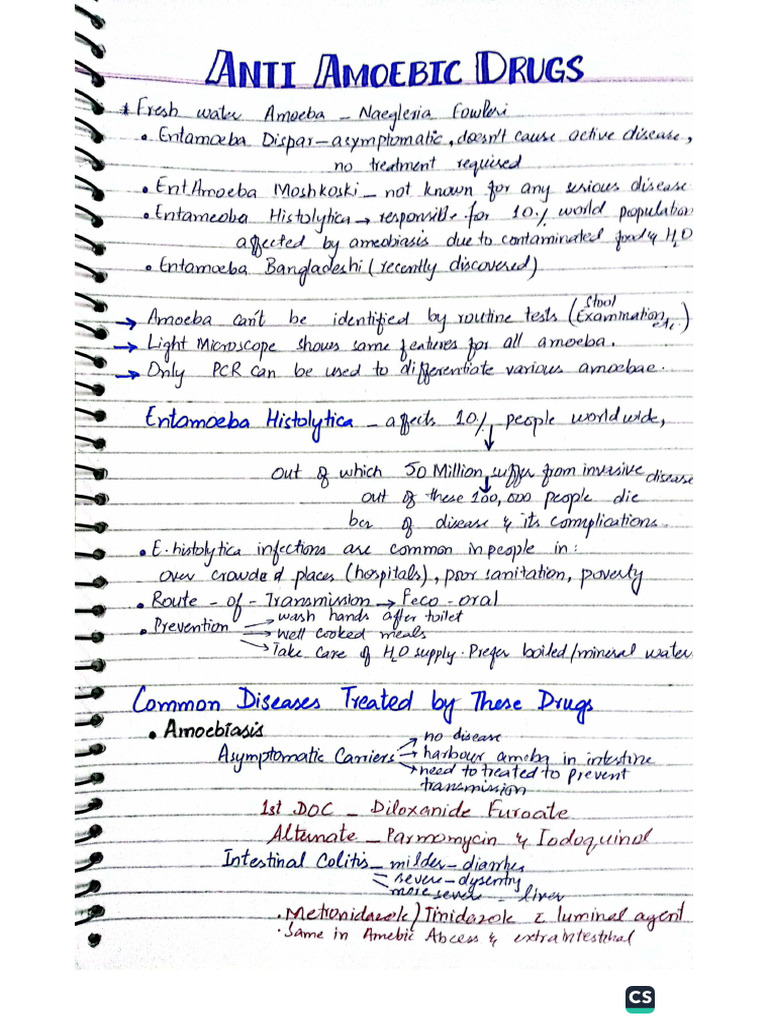 ANTI AMOEBIC DRUGS
* Fresh water Amoeba - Naegleria Fowleri
• Entamoeba Dispar - asymptomatic, doesn't cause active disease,
no treatment required
• Ent. Amoeba Moshkoski - not known for any serious disease
• Entameoba Histolytica → responsible for 10% world population
affected by ameobiasis due to contaminated food & H2O
• Entamoeba Bangladeshi (recently discovered)
→ Amoeba can't be identified by routine tests (Stool Examination etc.)
→ Light Microscope shows same features for all amoeba.
→ Only PCR can be used to differentiate various amoebae.
Entamoeba Histolytica - affects 10% people worldwide,
out of which 50 Million suffer from invasive disease
out of these 100,000 people die
bcz of disease & its complications.
• E. histolytica infections are common in people in:
over crowded places (hospitals), poor sanitation, poverty
• Route - of - Transmission → Feco - oral
• Prevention → wash hands after toilet
→ well cooked meals
→ Take care of H2O supply. Prefer boiled/mineral water
Common Diseases Treated by These Drugs
• Amoebiasis
Asymptomatic Carriers → no disease
→ harbour ameba in intestine
→ need to treated to prevent
transmission
1st DOC - Diloxanide Furoate
Alternate - Parmomycin & Iodoquinol
Intestinal Colitis - milder - diarrhea
severe - dysentry
more severe - liver
• Metronidazole / Tinidazole c luminal agent
• Same in Amebic Abcess & extraintestinal
CS